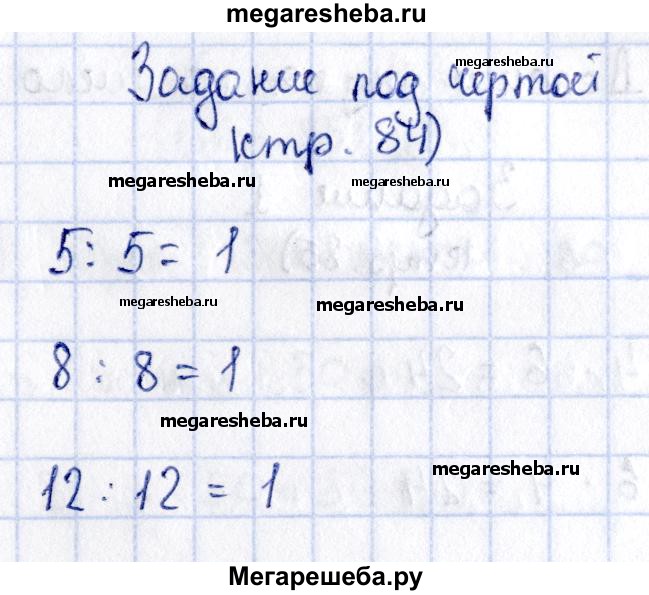 megaresheba.ru
Задание под чертой
megaresheba.ru
(стр. 84)
megaresheba.ru megaresheba.ru
5 : 5 = 1
megaresheba.ru megaresheba.ru
8 : 8 = 1
megaresheba.ru
megaresheba.ru
12 : 12 = 1
Мегарешеба.ру